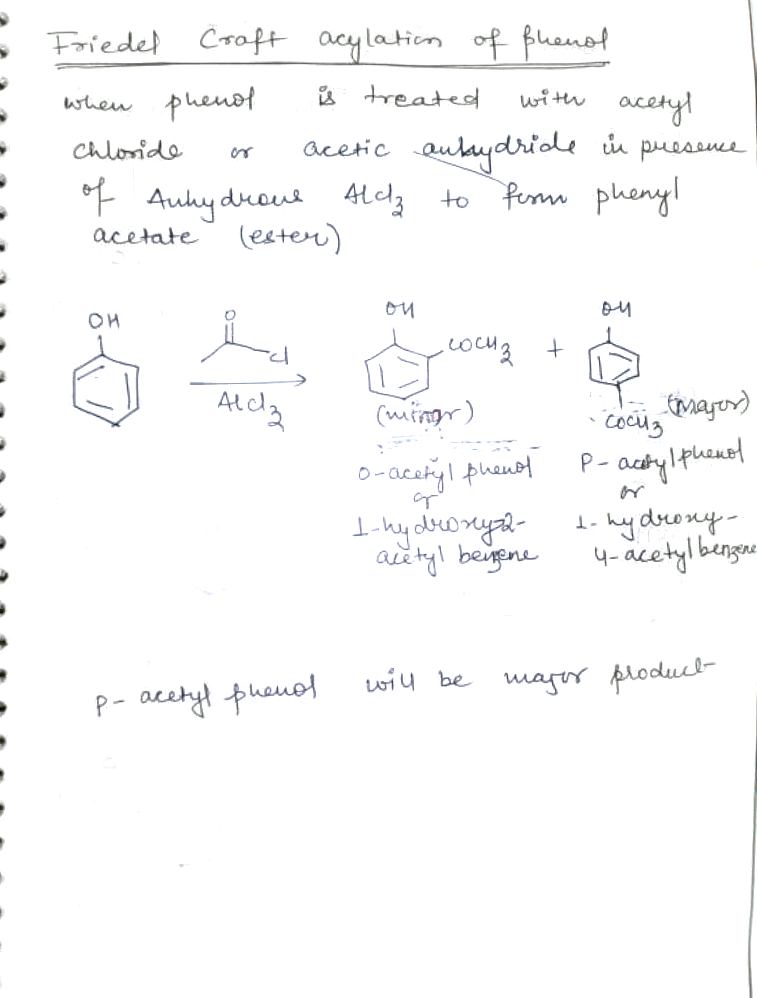 Friedel Craft acylation of phenol
when phenol is treated with acetyl
chloride or acetic anhydride in presence
of Anhydrous AlCl3 to form phenyl
acetate (ester)
OH
O
Cl
AlCl3
OH
COCH3
(minor)
+
OH
COCH3 (Major)
O-acetyl phenol
or
1-hydroxy-2-
acetyl benzene
P-acetylphenol
or
1-hydroxy-
4-acetylbenzene
p-acetyl phenol will be major product